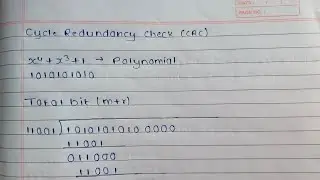 Cycle Redundancy Check (CRC)
x⁴+x³+1 → Polynomial
1010101010
Total bit (m+r)
11001) 10101010100000
11001
011000
11001